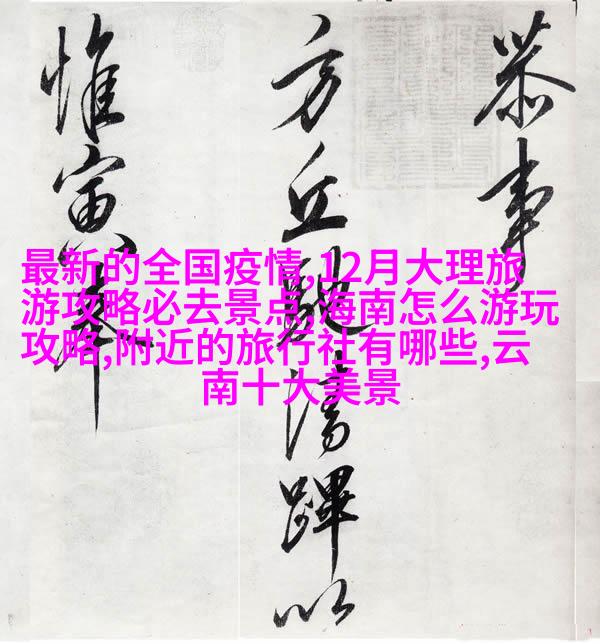 恭事
方丘清蹕以
惟寅奉
最新的全国疫情,12月大理旅
游攻略必去景点,海南怎么游玩
攻略,附近的旅行社有哪些,云
南十大美景